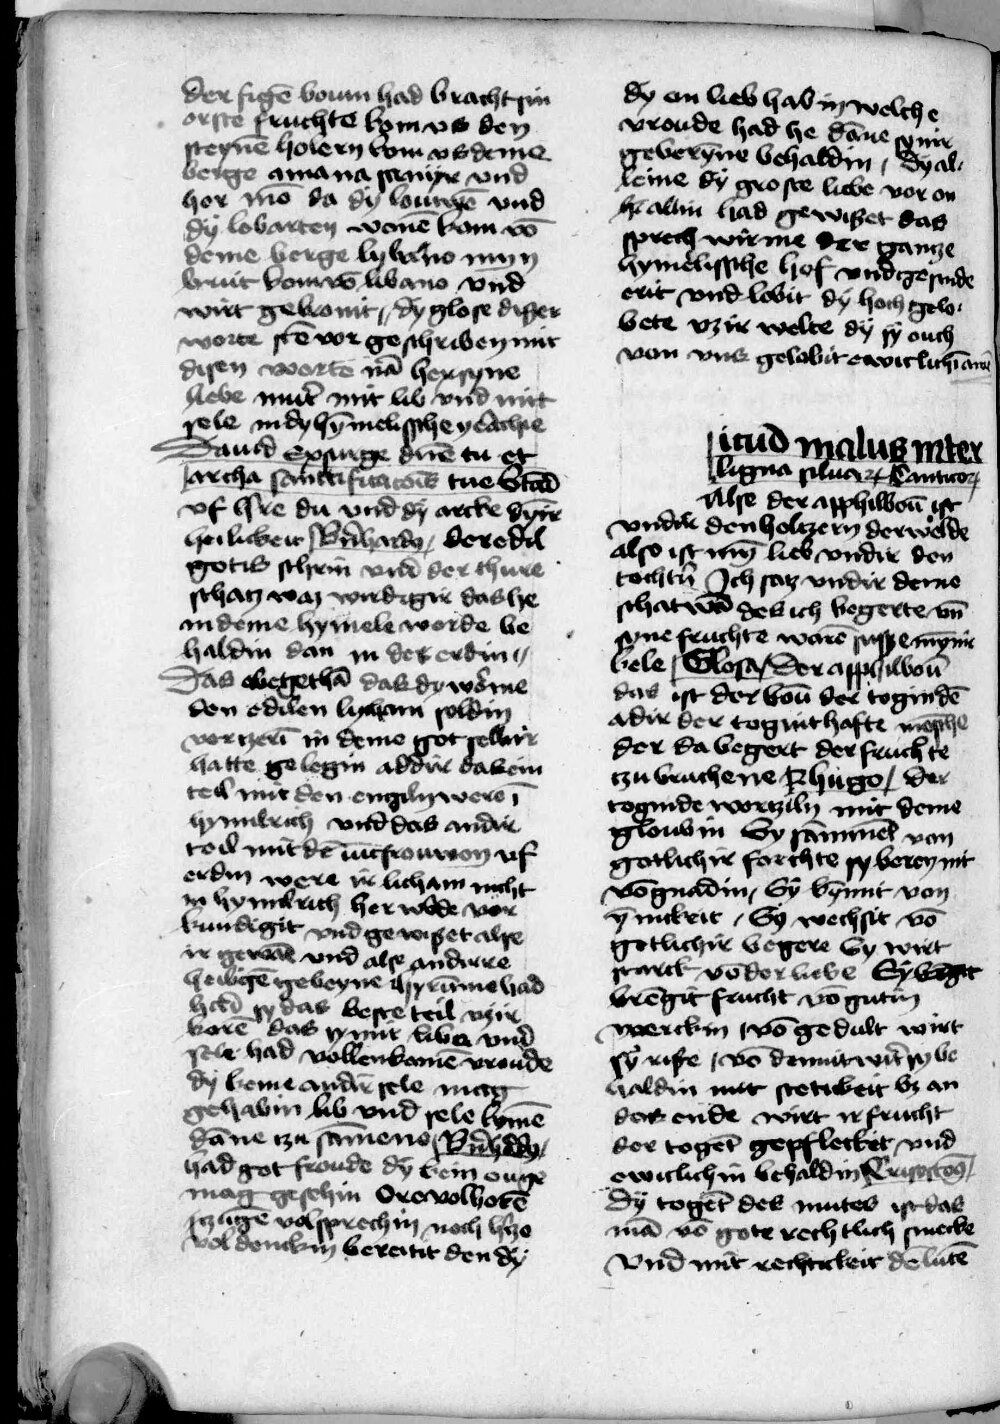 der fige̅ boum had bracht sin
orste fruchte kom vs den
steyne̅ holern kom vs deme
berge amana sanijr vnd
her mo̅ da dy louwe̅ vnd
dy lobarten wone̅ kom vo̅
deme berge lybano myn
bruit kom vo̅ libano vnd
wirt gekronit dy glose diszer
worte ste̅ vor geschriben mit
disen worte̅ na̅ her syne
liebe mut̅ mit lib vnd mit
sele in dy hy̅melissche
Dauid Exsurge dn̅e tu et
archa sanctificac̅o̅is tue Stand
vf h̅re du vnd dy arcke dyn̅r
heilickeit Bn̅hardq der edil
gotis schrin vnd der thure
schatz waz wirdigir das he
in deme hymele worde be
haldin dan in der erdin
Das obegetha̅ das dy worme
den edilen licham soldin
vorczeri̅ in deme got selbir
hatte gelegin addir das ein
teil mit den engiln were i̅
hymilrich vnd das andir
teil mit de̅ iu̅cfrouwen vf
erdin were ir licham nicht
in hymilrich her w̅de vor
kundigit vnd gewiszet alse
ir gewa̅t vnd alse andirre
heilige̅ gebeyne had
sy das beste teil vzir
kore̅ das sy mit libe vnd
sele had vollenkome̅ vroude
dy keine andir sele mag
gehabin lib vnd sele kome̅
da̅ne czu sa̅mene Bn̅hdq
had got froude dy kein ouge
mag gesehin Ore volhore̅
czu̅ge vol sprechin noch h̅ze
vol denckin bereitit den dy
dy en lieb hab in welche
vroude had he da̅ne synir
gebery̅ne behaldin Dy al
leine dy groste liebe vor on
allin had gewiszet das
sprech wir me der gantze
hymelissche hof vnd gesinde
erit vnd lobit dy hoch gelo
bete vzir welte dy sy ouch
von vns gelobit ewiclich i̅ ame̅
icud malus inter
ligna siluar Canticor
Alse der apphilbou̅ ist
vndir den holtzern der welde
also ist my̅ lieb vndir den
tocht̅n Ich satz vndir deme
schatwe̅ des ich begerte vn̅
syne fruchte ware̅ susze my̅nir
kele Glosa Der apphilbou̅
das ist der bou̅ der toginde̅
adir der toginthafte me̅sche
der da begert der fruchte
tzu bruchene Rhugo der
toginde wortziln mit deme
gloubin Sy samme̅t von
gotlichir forchte sy beren mit
vo̅ gnadin Sy ky̅mit von
y̅nickeit Sy wechsit vo̅
gotlichir begere Sy wirt
starck vo̅ der liebe Sy bre̅git
bre̅git frucht vo̅ gutin
werckin vo̅ gedult wirt
sy rife vo̅ demut wirt sy be
haldin mit stetikeit bz an
das ende wirt ir frucht
der toget̅ gepfleckit vnd
ewiclichin behaldin Crisostoq
Dy toget̅ des mutes ist das
ma̅ vo̅ gote rechtlich smecke
Vnd mit rechtickeit de̅ lute̅